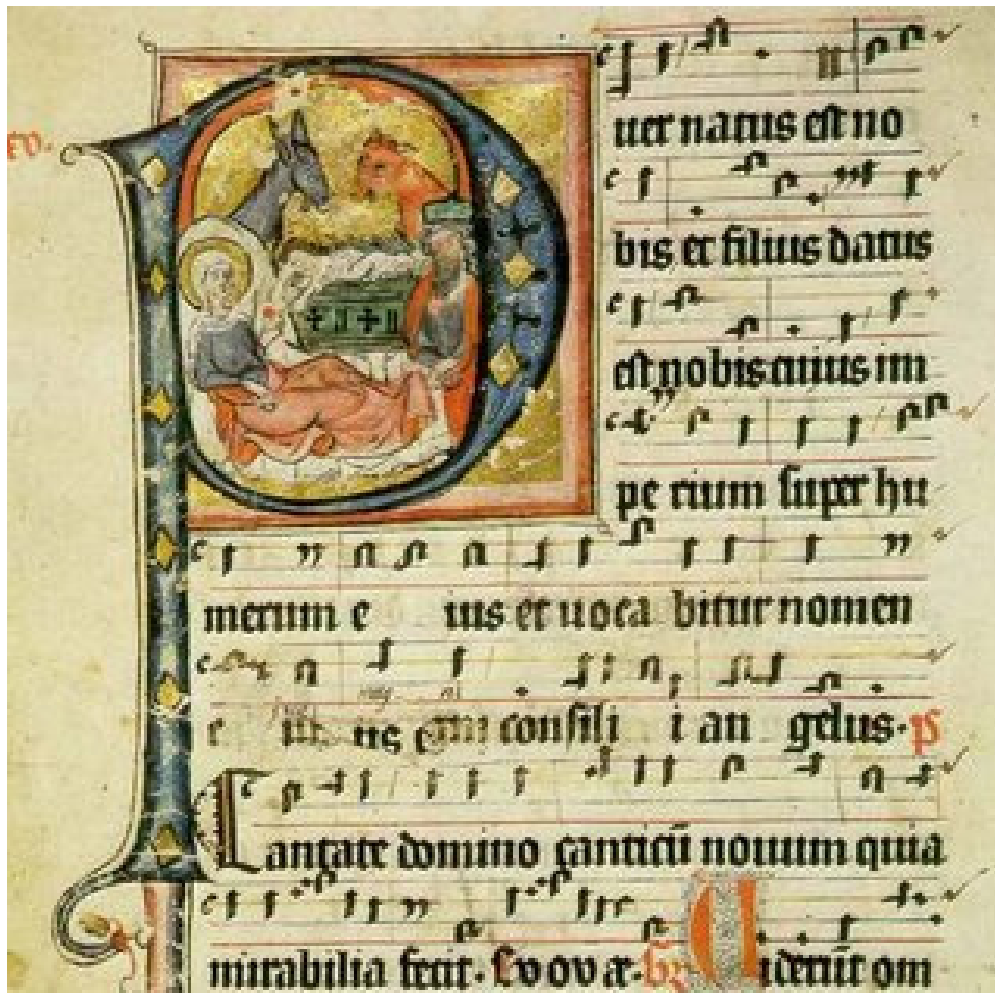 P uer natus est no
bis et filius datus
est nobis cuius im
pe rium super hu
merum e ius et uoca bitur nomen
e ius consili i an gelus. ps
Cantate domino canticū nouum quia
mirabilia fecit. Euouae. Viderūt om